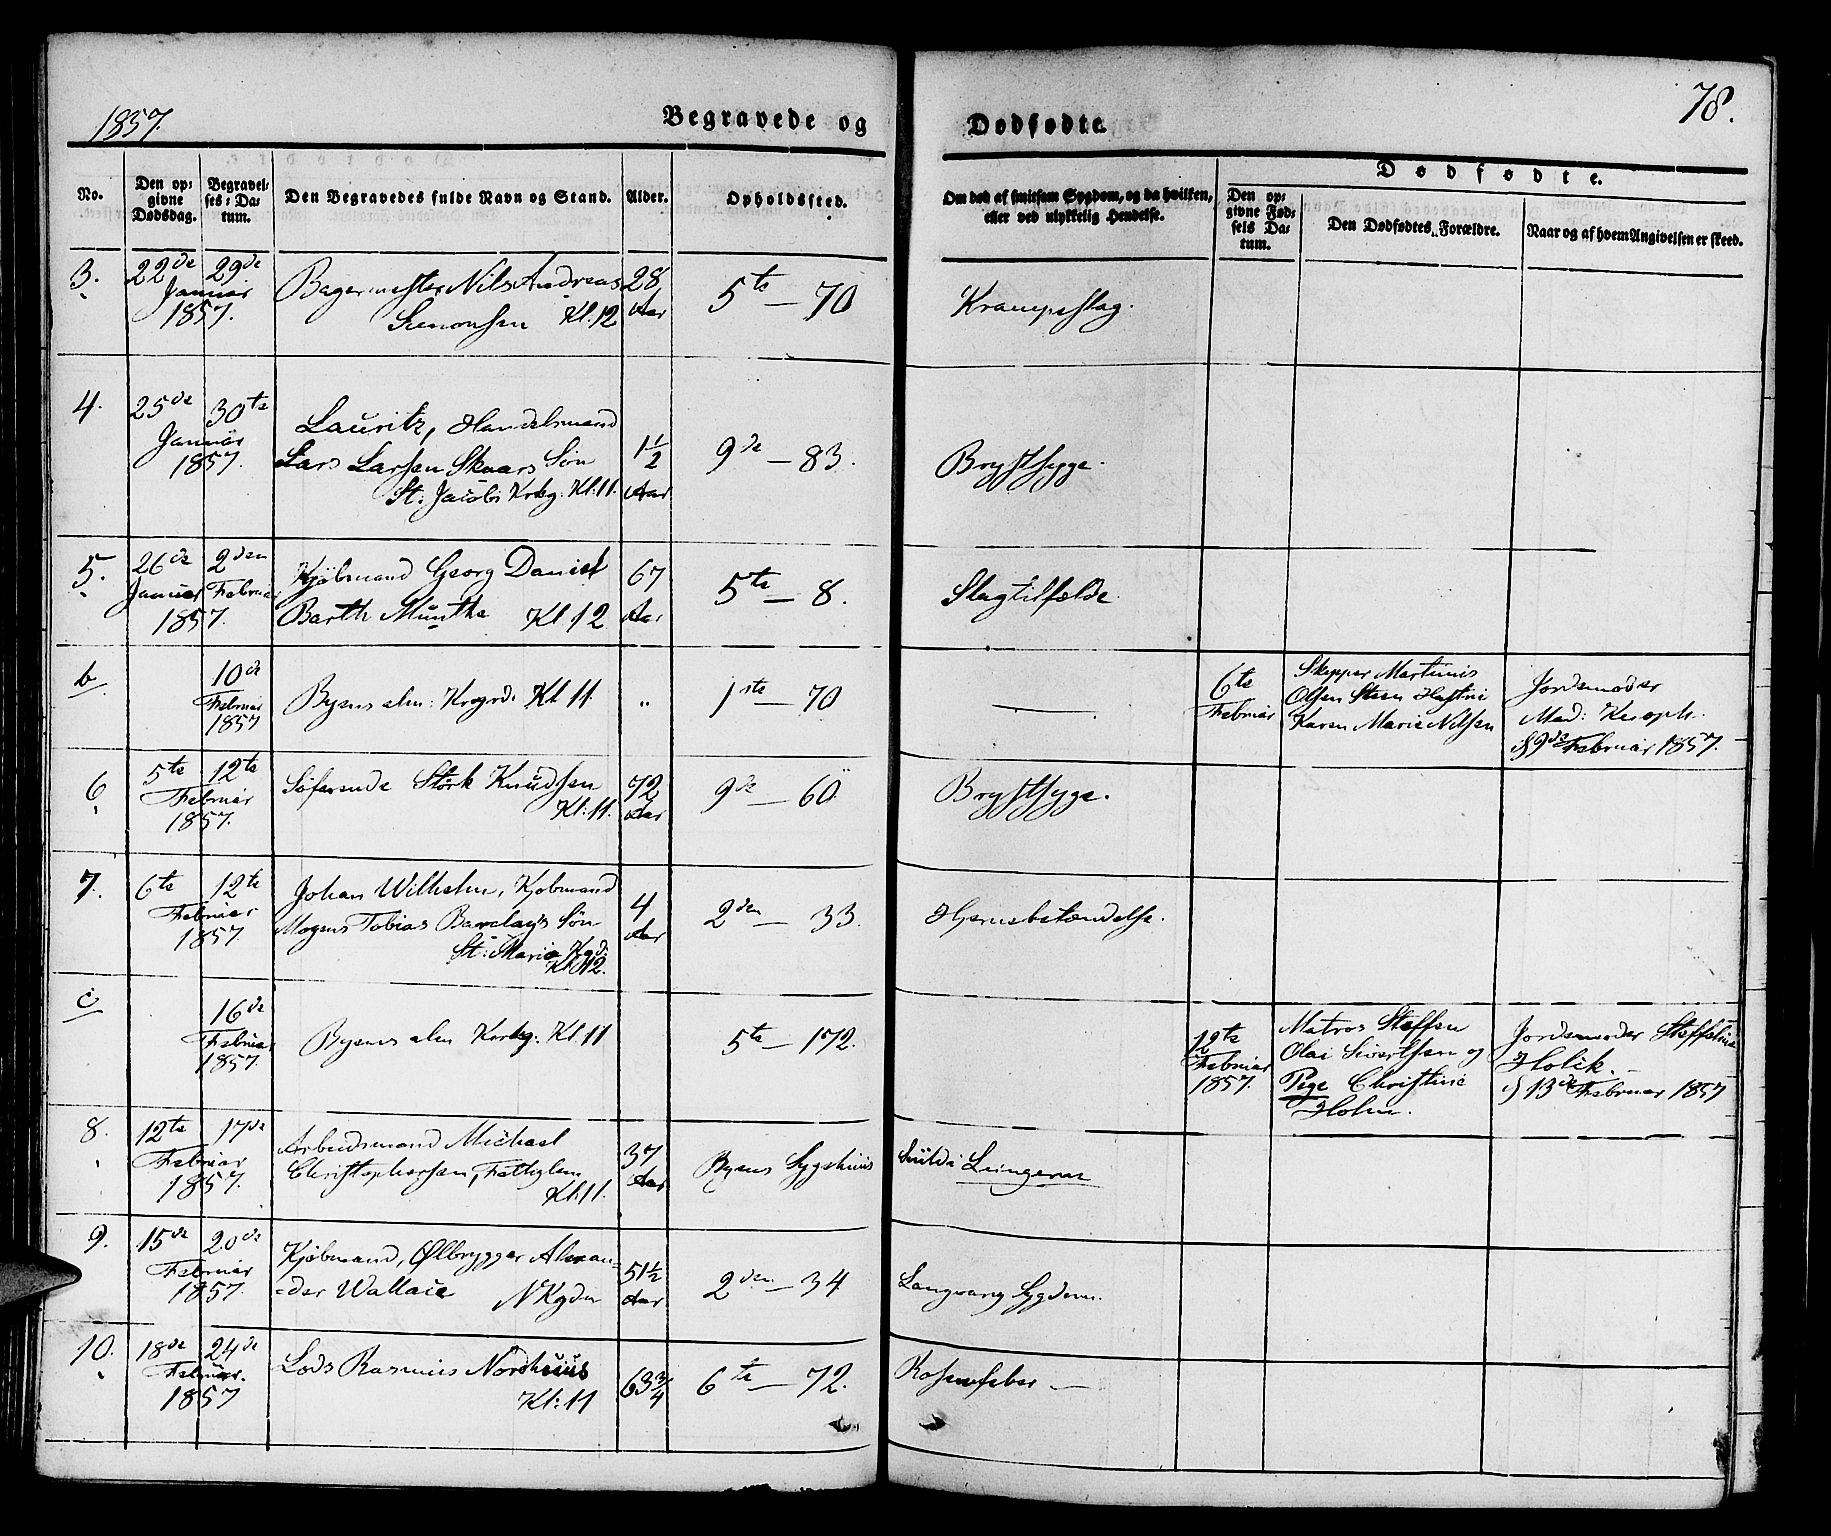 1857.
Begravede og Dødfødte.
78.
No.
Den opgivne Dødsdag.
Begravelses-Datum.
Den Begravedes fulde Navn og Stand.
Alder.
Opholdssted.
Om død af smitsom Sygdom, og da hvilken,
eller ved ulykkelig Hendelse.
Dødfødte.
Den opgivne Fødsels Datum.
Den Dødfødtes Forældre.
Naar og af hvem Angivelsen er skeed.
3.
22de 29de
Januar
1857.
Bagermester Nils Andreas
Simonsen Kl. 12
28
Aar
5te — 70
Krampeslag.
4.
25de 30te
Januar
1857.
Lauritz, Handelsmand
Lars Larsen Skaars Søn
St: Jacobs Krkg. Kl: 11.
1 1/2
Aar
9de — 83.
Brystsyge.
5.
26de 2den
Januar Februar
1857.
Kjøbmand Georg Daniel
Barth Munthe Kl 12
67
Aar
5te — 8.
Slagtilfælde
b
10de
Februar
1857
Byens alm: Krgrd: Kl 11.
"
1ste — 70
—
6te
Februar
Skipper Martinus
Olsen Steen Hustru
Karen Marie Nilsen
Jordemoder
Mad:
d 9de Februar 1857.
6
5te 12te
Februar
1857.
Søfarende Størk Knudsen
Kl: 11.
72
Aar
9de — 60
Brystsyge.
7.
6te 12te
Februar
1857.
Johan Wilhelm, Kjøbmand
Mogens Tobias Barclays Søn
St: Maria Kgd:
Kl 12.
4
Aar
2den — 33.
Hjernebetændelse.
c
16de
Februar
1857.
Byens alm Krkg: Kl. 11
5te — 172.
12te
Februar
1857.
Matros Steffen
Olai Sivertsen og
Pige Christine
Holm.
Jordemoder Steffeline
Holck.
d 13de Februar 1857
8.
12te 17de
Februar
1857.
Arbeidsmand Michael
Christophersen, Fattiglem
Kl. 11.
37
Aar
Byens Sygehuus
Lungerne
9.
15de 20de
Februar
1857.
Kjøbmand, Ølbrygger Alexan-
-der Wallace NKgdn
51 1/2
Aar
2den — 34
Langvarig Sygdom.
10.
18de 24de
Februar.
1857
Lods Rasmus Nordhuus
Kl: 11
63 3/4
6te — 72.
Rosenfeber —